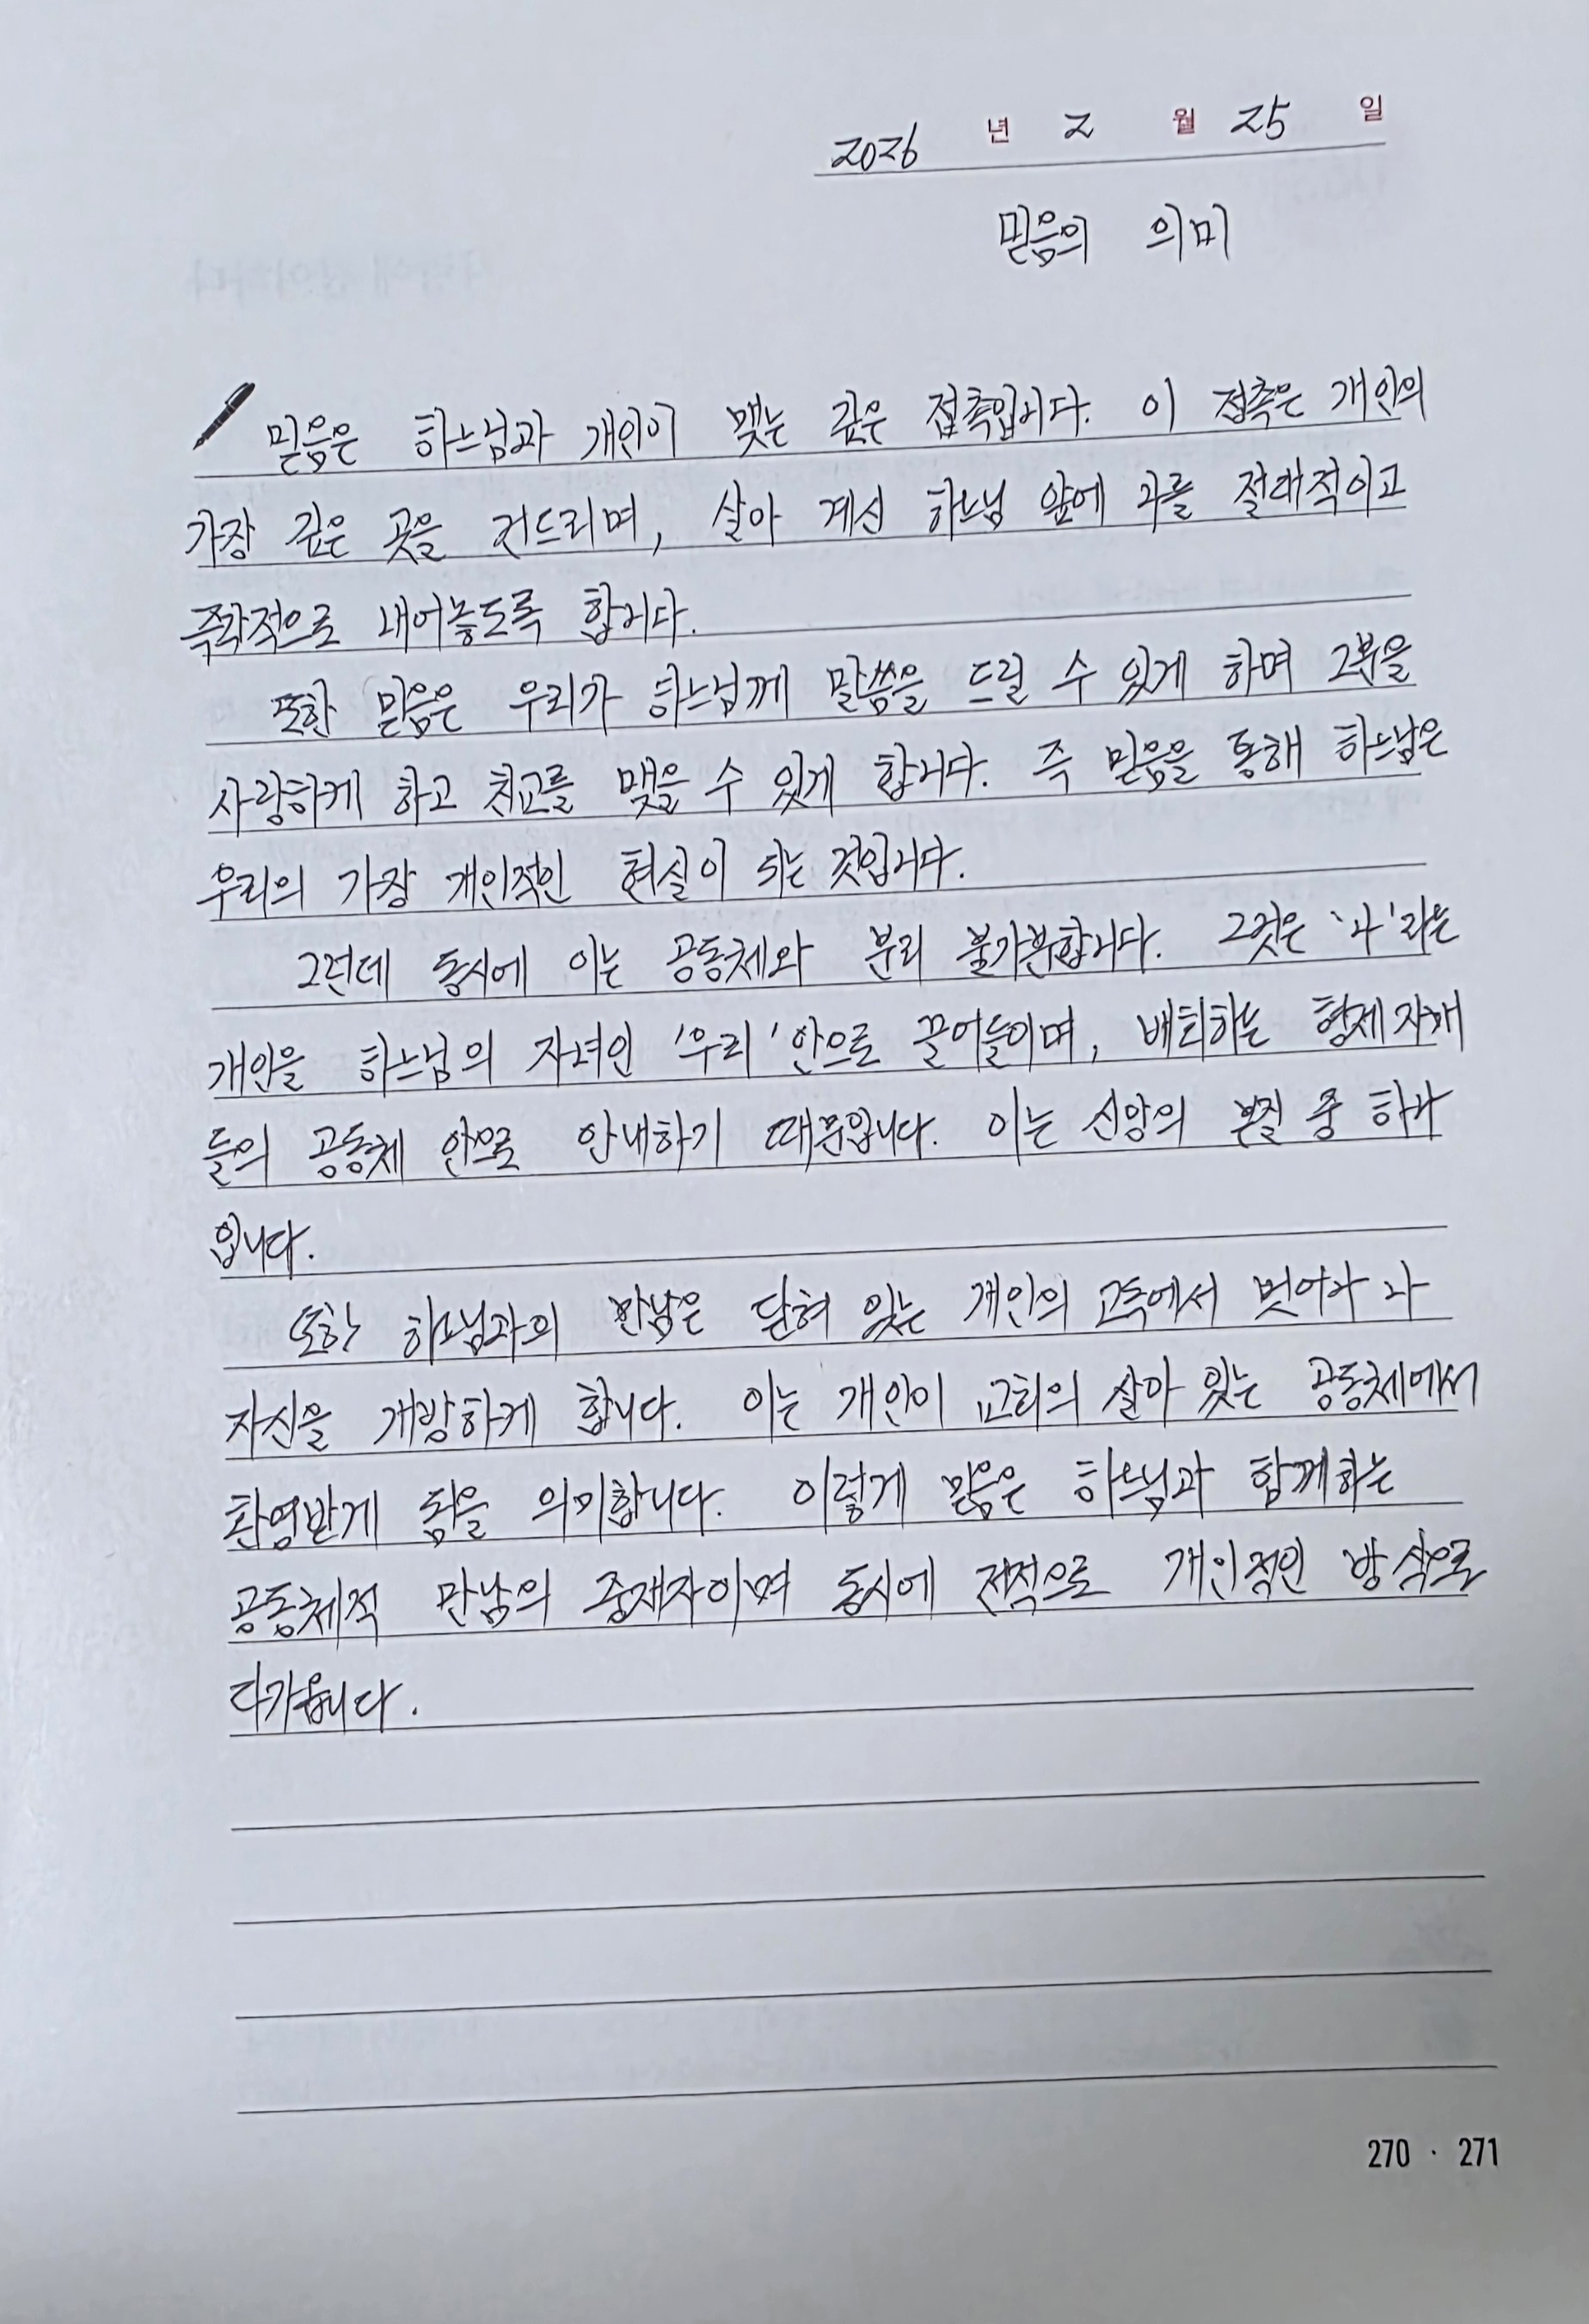 2026 년 2 월 25 일
믿음의 의미
믿음은 하느님과 개인이 맺는 깊은 접촉입니다. 이 접촉은 개인의
가장 깊은 곳을 건드리며, 살아 계신 하느님 앞에 나를 절대적이고
즉각적으로 내어놓도록 합니다.
또한 믿음은 우리가 하느님께 말씀을 드릴 수 있게 하며 그분을
사랑하게 하고 친교를 맺을 수 있게 합니다. 즉 믿음을 통해 하느님은
우리의 가장 개인적인 현실이 되는 것입니다.
그런데 동시에 이는 공동체와 분리 불가분합니다. 그것은 '나'라는
개인을 하느님의 자녀인 '우리' 안으로 끌어들이며, 배회하는 형제자매
들의 공동체 안으로 안내하기 때문입니다. 이는 신앙의 본질 중 하나
입니다.
또한 하느님과의 만남은 닫혀 있는 개인의 고독에서 벗어나 나
자신을 개방하게 합니다. 이는 개인이 교회의 살아 있는 공동체에서
환영받게 됨을 의미합니다. 이렇게 믿음은 하느님과 함께하는
공동체적 만남의 중재자이며 동시에 전적으로 개인적인 방식으로
다가옵니다.
270 · 271